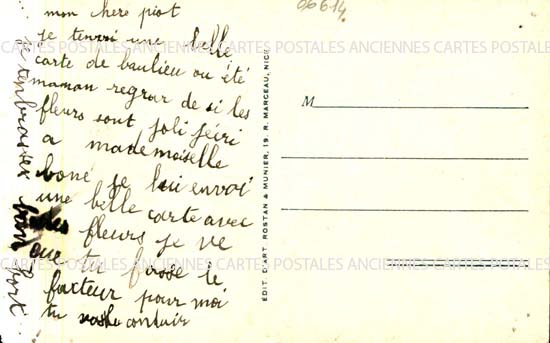 06614
mon here piot
je tenvri une belle
carte de baulieu ou été
maman regrar de si les
fleurs sont joli jécri
a mademoiselle
bone je lui envoi
une belle carte avec
fleurs je ve
que tu fasse le
facteur pour moi
tu contair
je tenbrasse bien fort
CARTES POSTALES ANCIENNES CARTES POSTALES ANCIENNES CARTES POSTALES
CARTES POSTALES ANCIENNES CARTES POSTALES ANCIENNES CARTES POSTALES
EDIT. D'ART ROSTAN & MUNIER, 19 R. MARCEAU, NICE
M